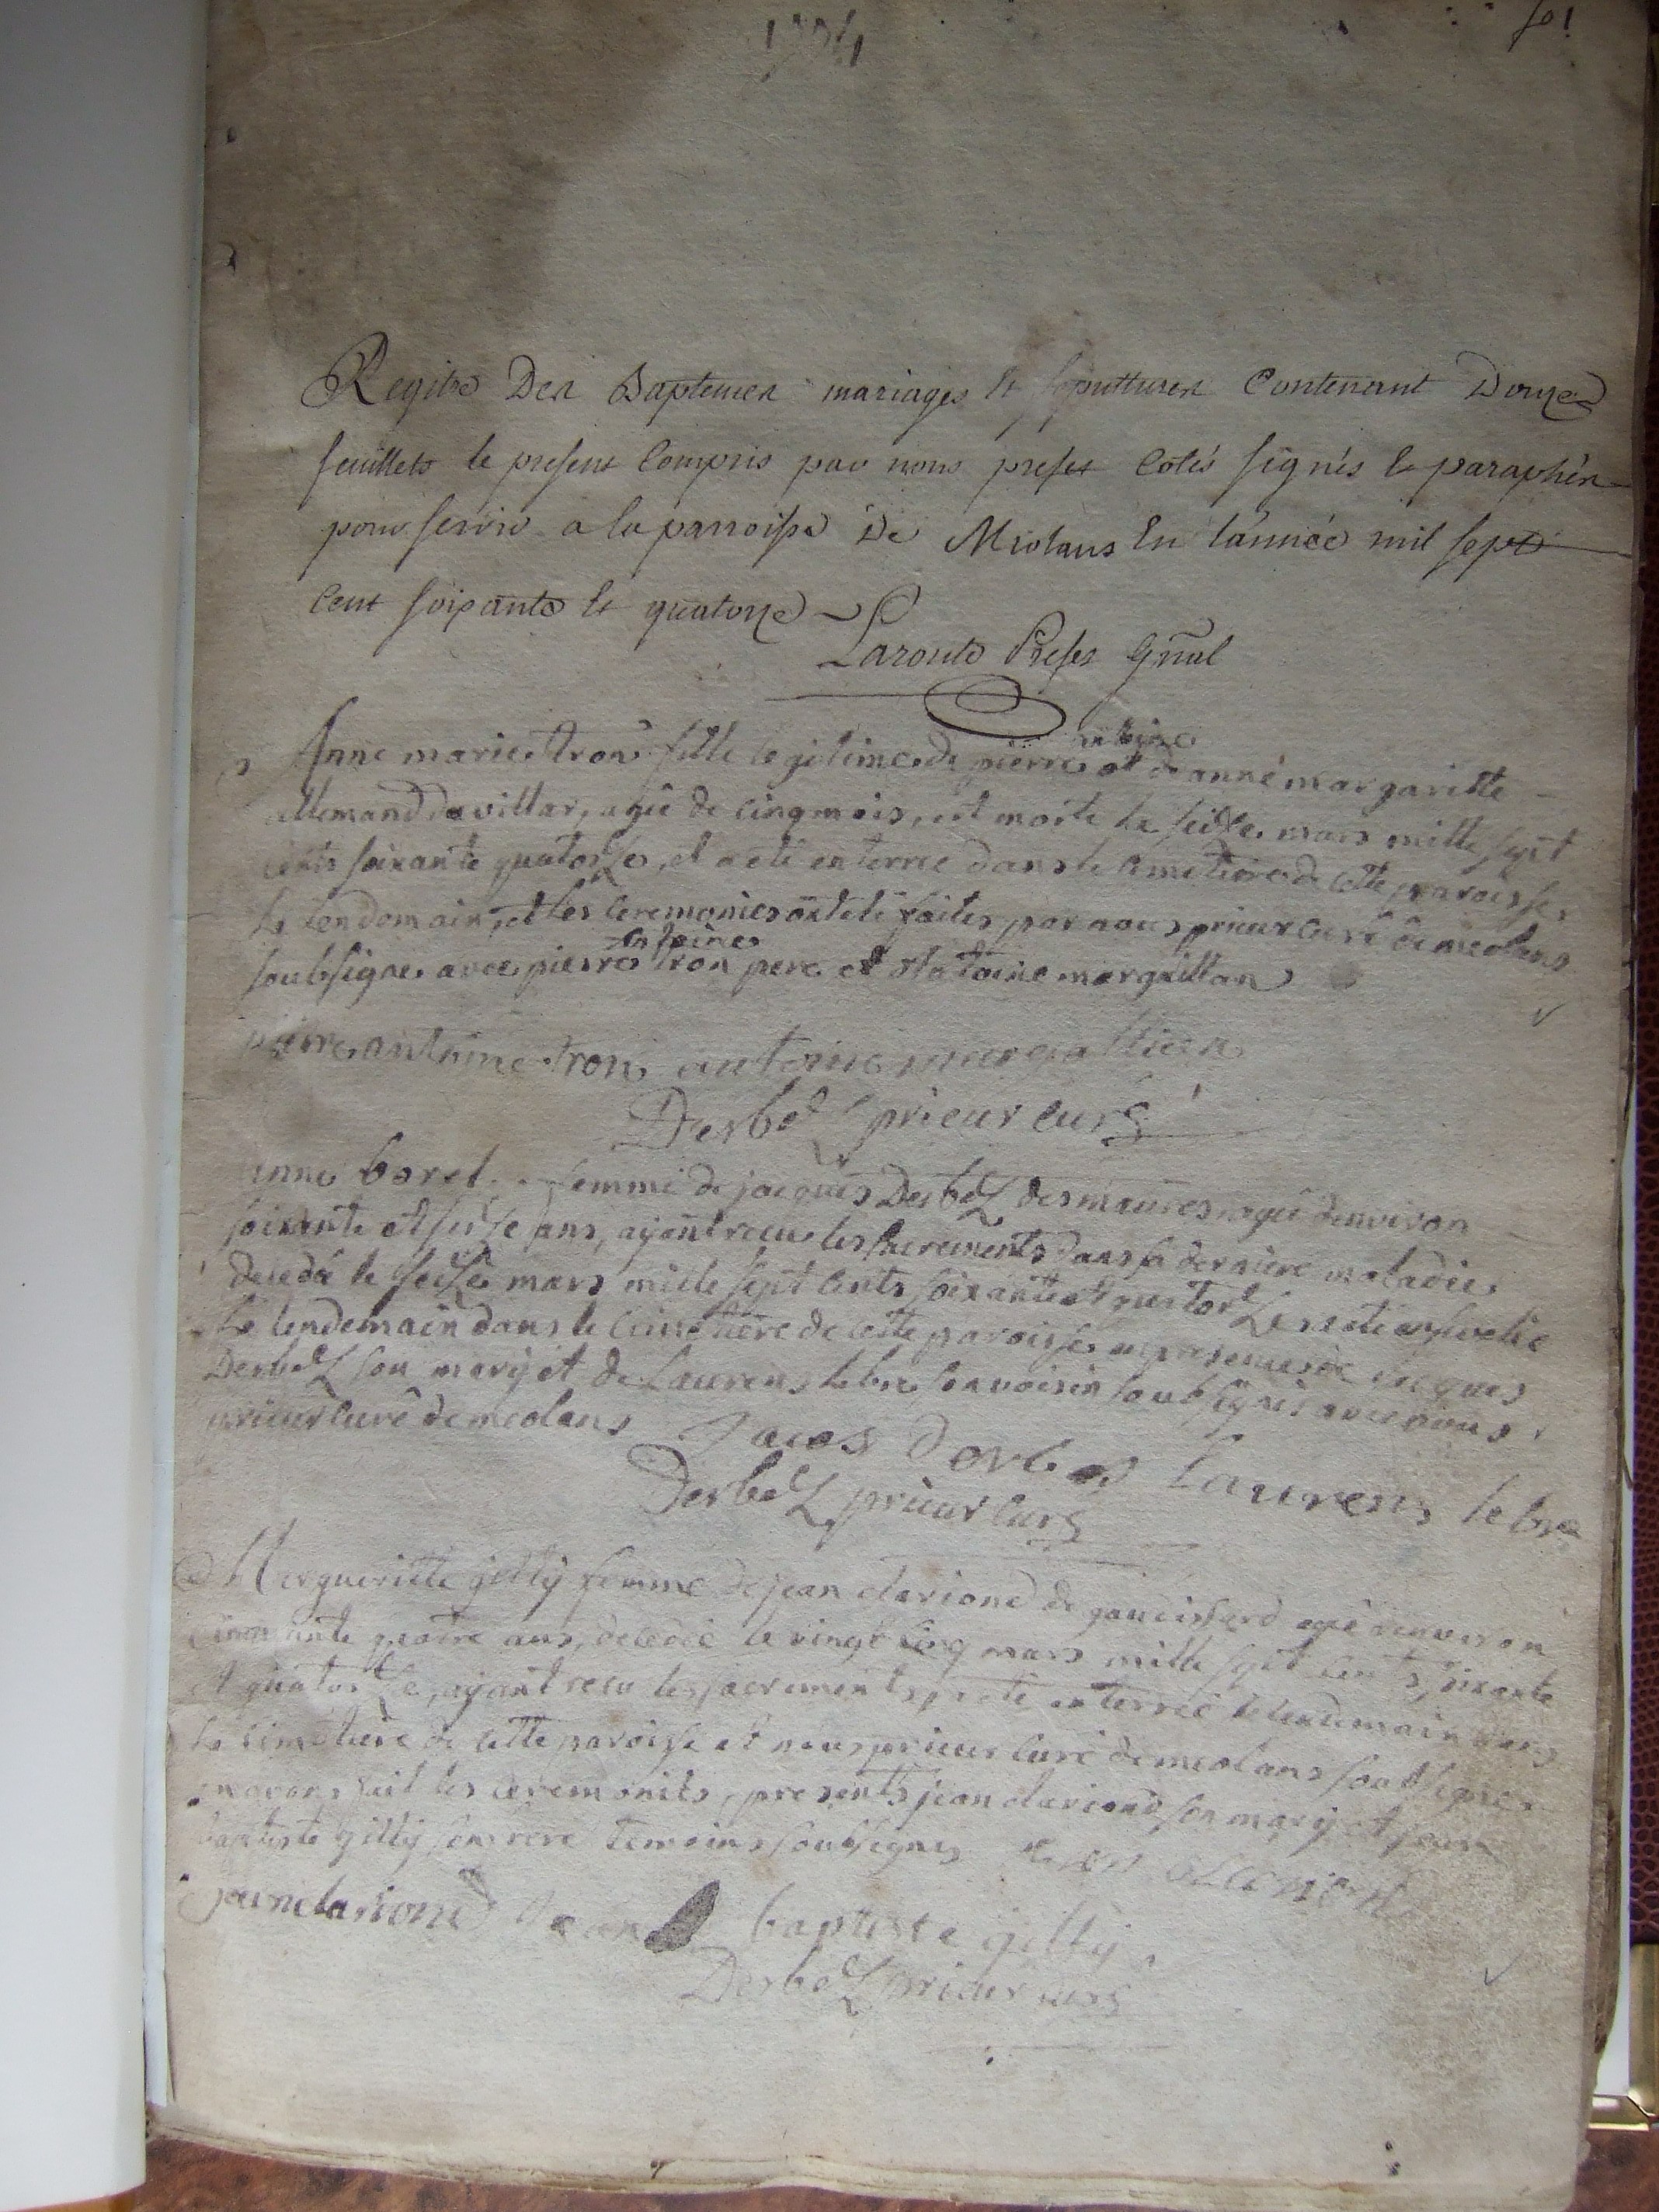 fo 1
Registre Des Baptemes mariages et sepultures Contenant Douze
feuillets le present Compris par nous prefet Cotés signés et paraphés
pour servir a la parroisse De Miolans En l'année mil sept
Cent soixante et quatorze
Prefet Gñal
Anne marie tron fille legitime de pierre antoine et de anne margaritte
allemand du villar, agée de cinq mois, est morte le seize mars mille sept
cents soixante quatorze, et a eté enterrée dans le cimetiere de cette paroisse
le lendemain, et les ceremonies ont eté faites par nous prieur curé de meolans
soubsigne avec pierre antoine tron pere et Antoine margaillan
pierre antoine tron antoine margallian
Derbez prieur curé
anne borel femme de jacques Derbez des maures agée d'environ
soixante et seize ans, ayant recue les sacrements dans sa derniere maladie,
decedée le seize mars mille sept cents soixante et quatorze a eté ensevelie
le lendemain dans le cimetiere de cette paroisse en presence de jacques
Derbez son mary et de Laurens lebre son voisin soubsignés avec nous
prieur curé de meolans Jacques Derbes Laurens lebre
Derbez prieur curé
Margueritte gilly femme de jean clariond de gaudissard agée d'environ
cinquante quatre ans, decedée le vingt cinq mars mille sept cents soixante
et quatorze, ayant recu les sacrements, a eté enterrée le lendemain dans
le cimetiere de cette paroisse et nous prieur curé de meolans soubsigne
en avons fait les ceremonies, presents jean clariond son mary et jean
baptiste gilly son frere temoins soubsignes
jean clariond Jean baptiste gilly
Derbez prieur curé